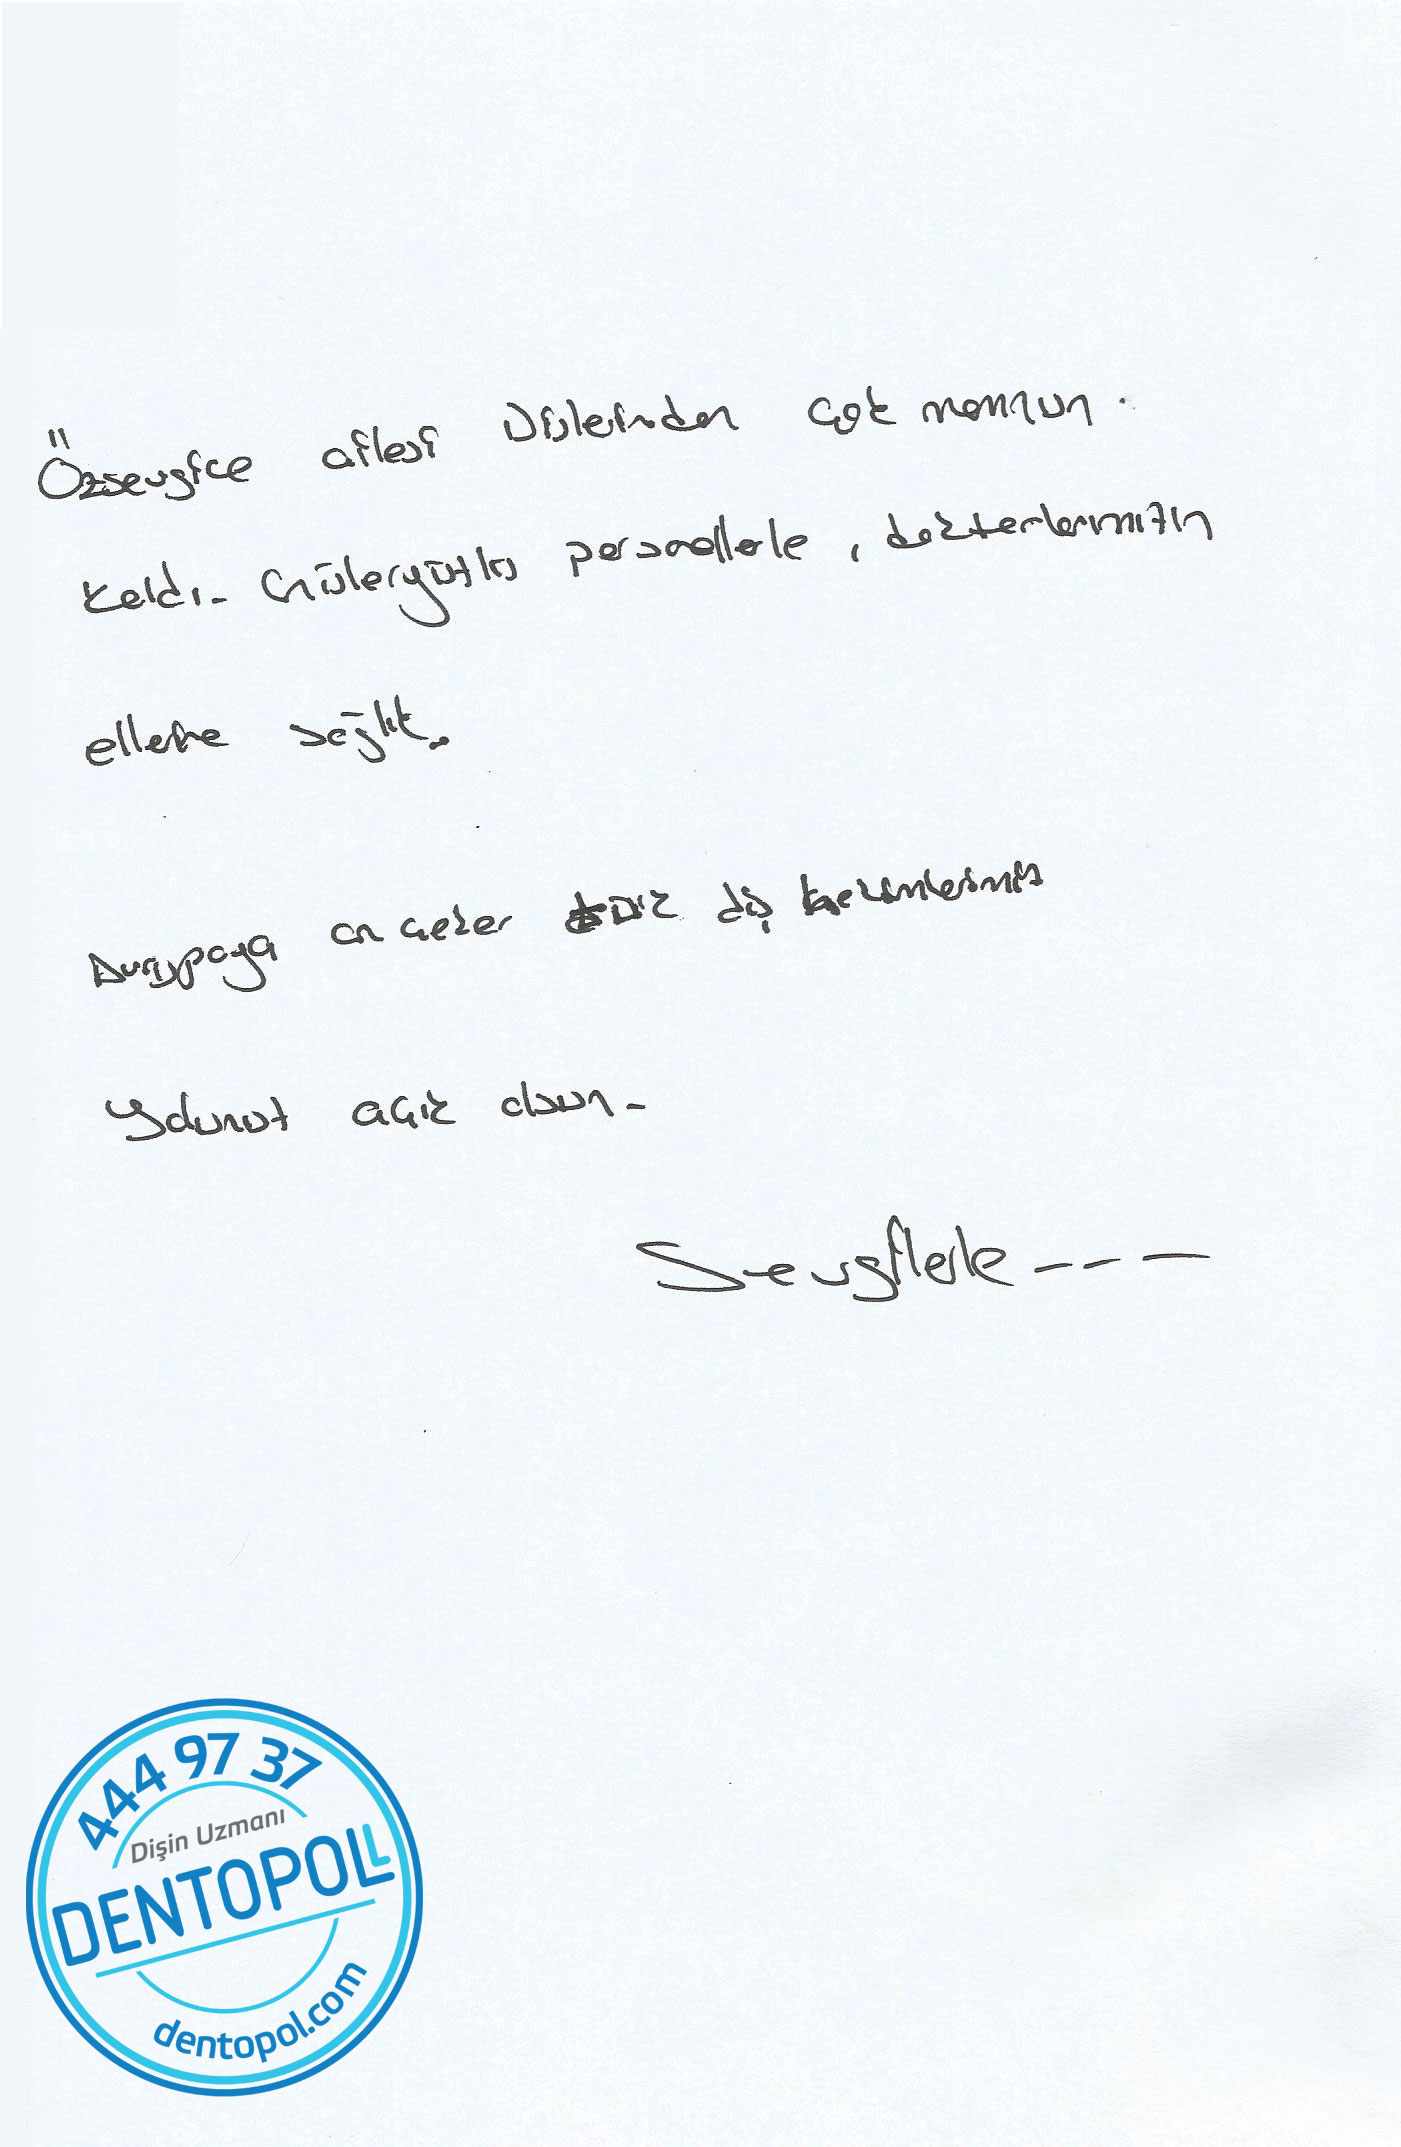 Özsevgice ailesi Dişlerinden çok memnun.
Kaldı. Güleryüzlü personellerle, doktorlarımızın
ellerine sağlık.
Avrupaya on çeker diş hekimlerimiz
Yolunuz açık olsun.
Sevgilerle ---
444 97 37
Dişin Uzmanı
DENTOPOLL
dentopol.com